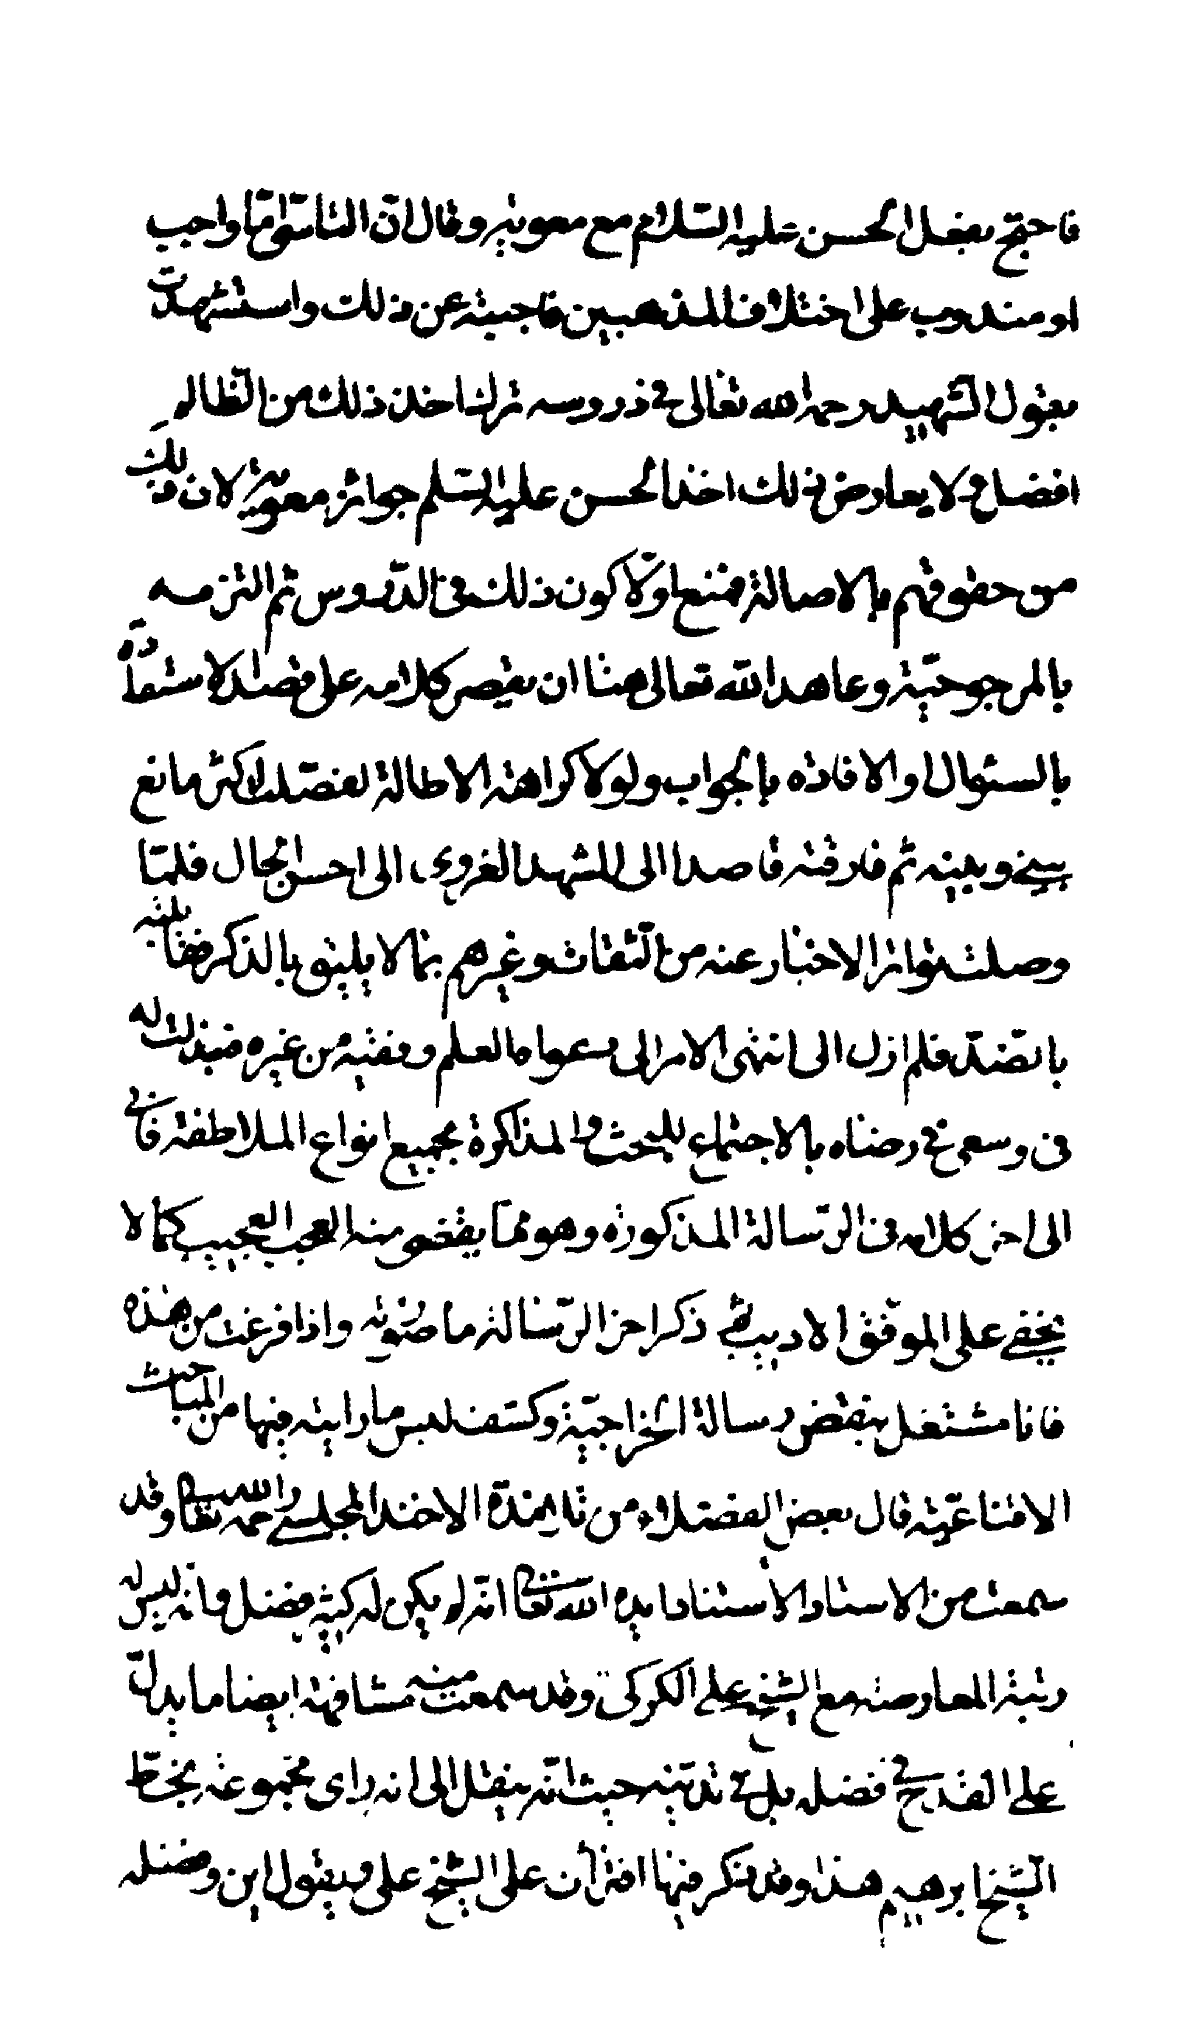 فاحتج بفعل الحسن عليه السلام مع معوية وقال انّ التاسّى امّا واجب
او مندوب على اختلاف المذهبين فاجبته عن ذلك واستشهدت
بقول الشهيد رحمه الله تعالى في دروسه ترك اخذ ذلك من الظالم
افضل ولا يعارض ذلك اخذ الحسن عليه السّلم جوائز معوية لان ذلك
من حقوقهم بالاصالة فمنع اوّلا كون ذلك في الدّروس ثم التزم
بالمرجوحيّة وعاهد الله تعالى هنا ان يقصر كلامه على قصد الاستفادة
بالسئوال او الافاده بالجواب ولولا كراهته الاطالة لفصّلت اكثر ما نع
بيني وبينه ثم فارقته قاصدا الى المشهد الغروي الى احسن الحال فلمّا
وصلت تواتر الاخبار عنه من الثقات وغيرهم بما لا يليق بالذكر
بالضدّ فلم ازل الى انتهى الامر الى العلم ونفيه من غيره فبذلت له
في وسعى في رضاه بالاجتماع للبحث والمذاكرة بجميع انواع الملاطفة فابى
الى اخر كلامه في الرّسالة المذكورة وهو ممّا يقضى منه العجب العجيب كما لا
يخفى على الموفّق الاديب ثم ذكر اخر الرّسالة ما صورته واذا فرغت من هذه
فانا مشتغل بنقض رسالة الخراجيّة وكشف لبس ما رايته فيها من المباحث
الاقناعيّة قال بعض الفضلاء من تلامذة الاخند المجلسي رحمه الله تعالى وقد
سمعت من الاستاد الاستناد ايده الله تعالى انّه لم يكن له كثير فضل وانه ليس له
رتبة المعارضة مع الشيخ علي الكركي وقد سمعت منه مشافهة ايضا ما يدل
على القدح في فضله بل في تدينه حيث انّه ينقل الى انه راى مجموعة بخطّ
الشيخ ابرهيم هذا وقد ذكر فيها افتراآت على الشيخ على ويقول اين وفضله